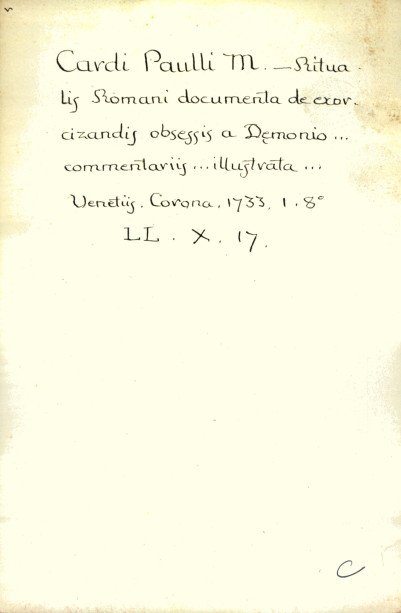 Cardi Paulli M. — Ritua-
lis Romani documenta de exor-
cizandis obsessis a Dęmonio ...
commentariis ... illustrata ...
Venetiis. Corona. 1733. 1. 8°
LL. X. 17.
C